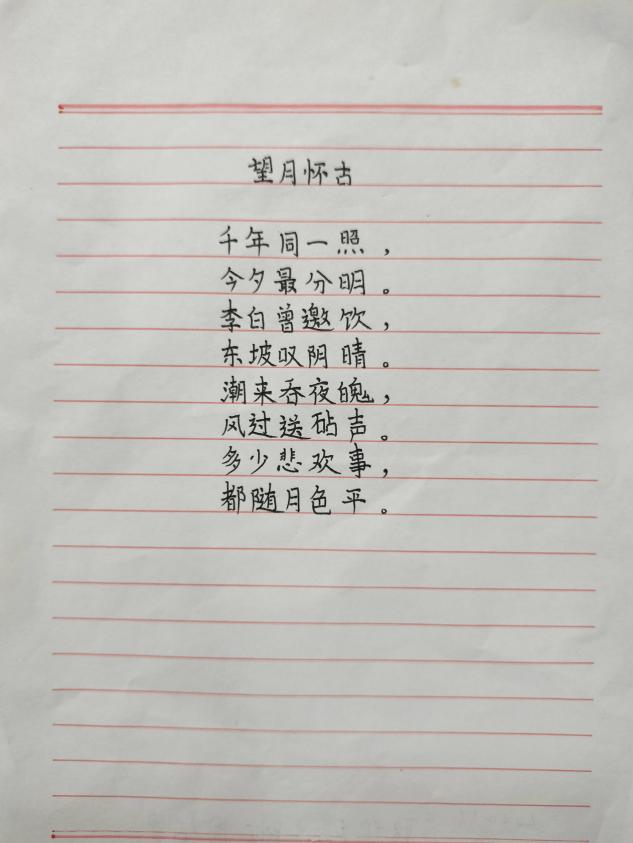 望月怀古
千年同一照，
今夕最分明。
李白曾邀饮，
东坡叹阴晴。
潮来吞夜魄，
风过送砧声。
多少悲欢事，
都随月色平。